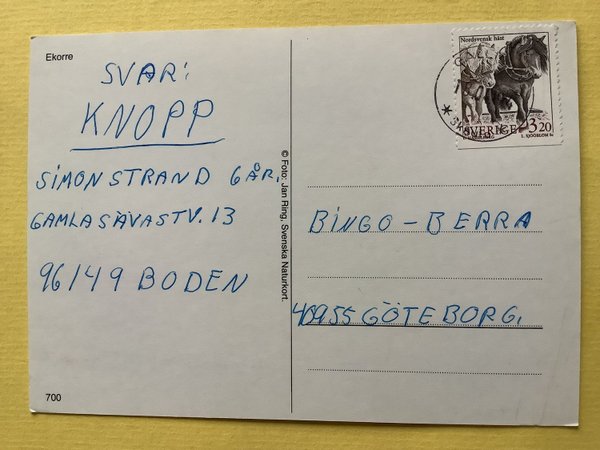 Ekorre
SVAR:
KNOPP
SIMON STRAND 6 ÅR.
GAMLA SÄVASTV. 13
96149 BODEN
700
© Foto: Jan Ring. Svenska Naturkort.
Nordsvensk häst
SVERIGE 3.20
BINGO-BERRA
40955 GÖTEBORG.